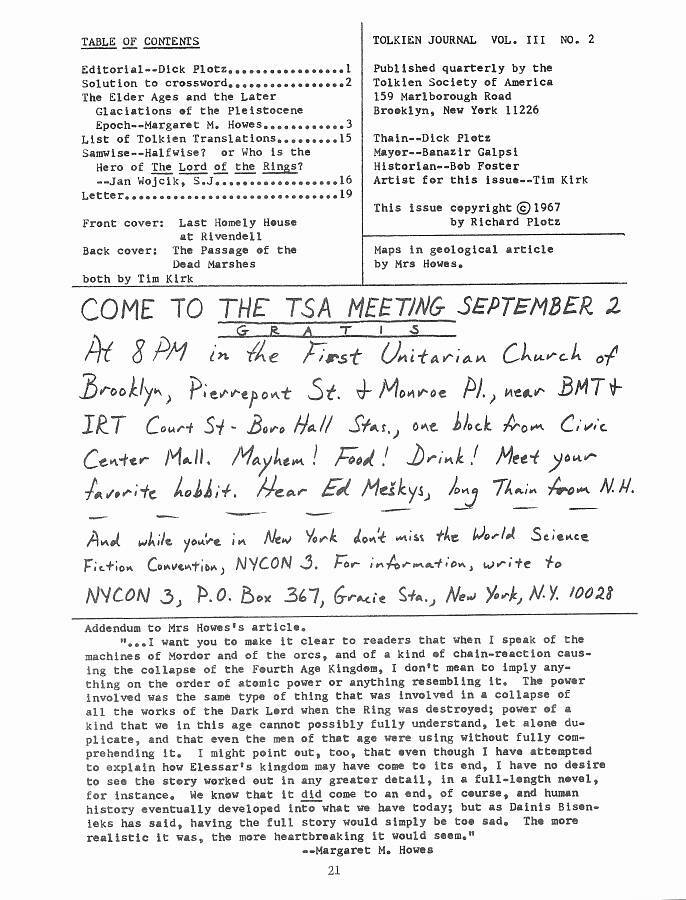 TABLE OF CONTENTS
Editorial--Dick Plotz.................1
Solution to crossword.................2
The Elder Ages and the Later
Glaciations of the Pleistocene
Epoch--Margaret M. Howes............3
List of Tolkien Translations.........15
Samwise--Halfwise? or Who is the
Hero of The Lord of the Rings?
--Jan Wojcik, S.J..................16
Letter...............................19
Front cover: Last Homely House
at Rivendell
Back cover: The Passage of the
Dead Marshes
both by Tim Kirk
TOLKIEN JOURNAL VOL. III NO. 2
Published quarterly by the
Tolkien Society of America
159 Marlborough Road
Brooklyn, New York 11226
Thain--Dick Plotz
Mayor--Banazir Galpsi
Historian--Bob Foster
Artist for this issue--Tim Kirk
This issue copyright ©1967
by Richard Plotz
Maps in geological article
by Mrs Howes.
COME TO THE TSA MEETING SEPTEMBER 2
G R A T I S
At 8 PM in the First Unitarian Church of
Brooklyn, Pierrepont St. + Monroe Pl., near BMT +
IRT Court St - Boro Hall Stas., one block from Civic
Center Mall. Mayhem! Food! Drink! Meet your
favorite hobbit. Hear Ed Meškys, long Thain from N.H.
And while you're in New York don't miss the World Science
Fiction Convention, NYCON 3. For information, write to
NYCON 3, P.O. Box 367, Gracie Sta., New York, N.Y. 10028
Addendum to Mrs Howes's article.
"...I want you to make it clear to readers that when I speak of the
machines of Mordor and of the orcs, and of a kind of chain-reaction caus-
ing the collapse of the Fourth Age Kingdom, I don't mean to imply any-
thing on the order of atomic power or anything resembling it. The power
involved was the same type of thing that was involved in a collapse of
all the works of the Dark Lord when the Ring was destroyed; power of a
kind that we in this age cannot possibly fully understand, let alone du-
plicate, and that even the men of that age were using without fully com-
prehending it. I might point out, too, that even though I have attempted
to explain how Elessar's kingdom may have come to its end, I have no desire
to see the story worked out in any greater detail, in a full-length novel,
for instance. We know that it did come to an end, of course, and human
history eventually developed into what we have today; but as Dainis Bisen-
ieks has said, having the full story would simply be too sad. The more
realistic it was, the more heartbreaking it would seem."
--Margaret M. Howes
21